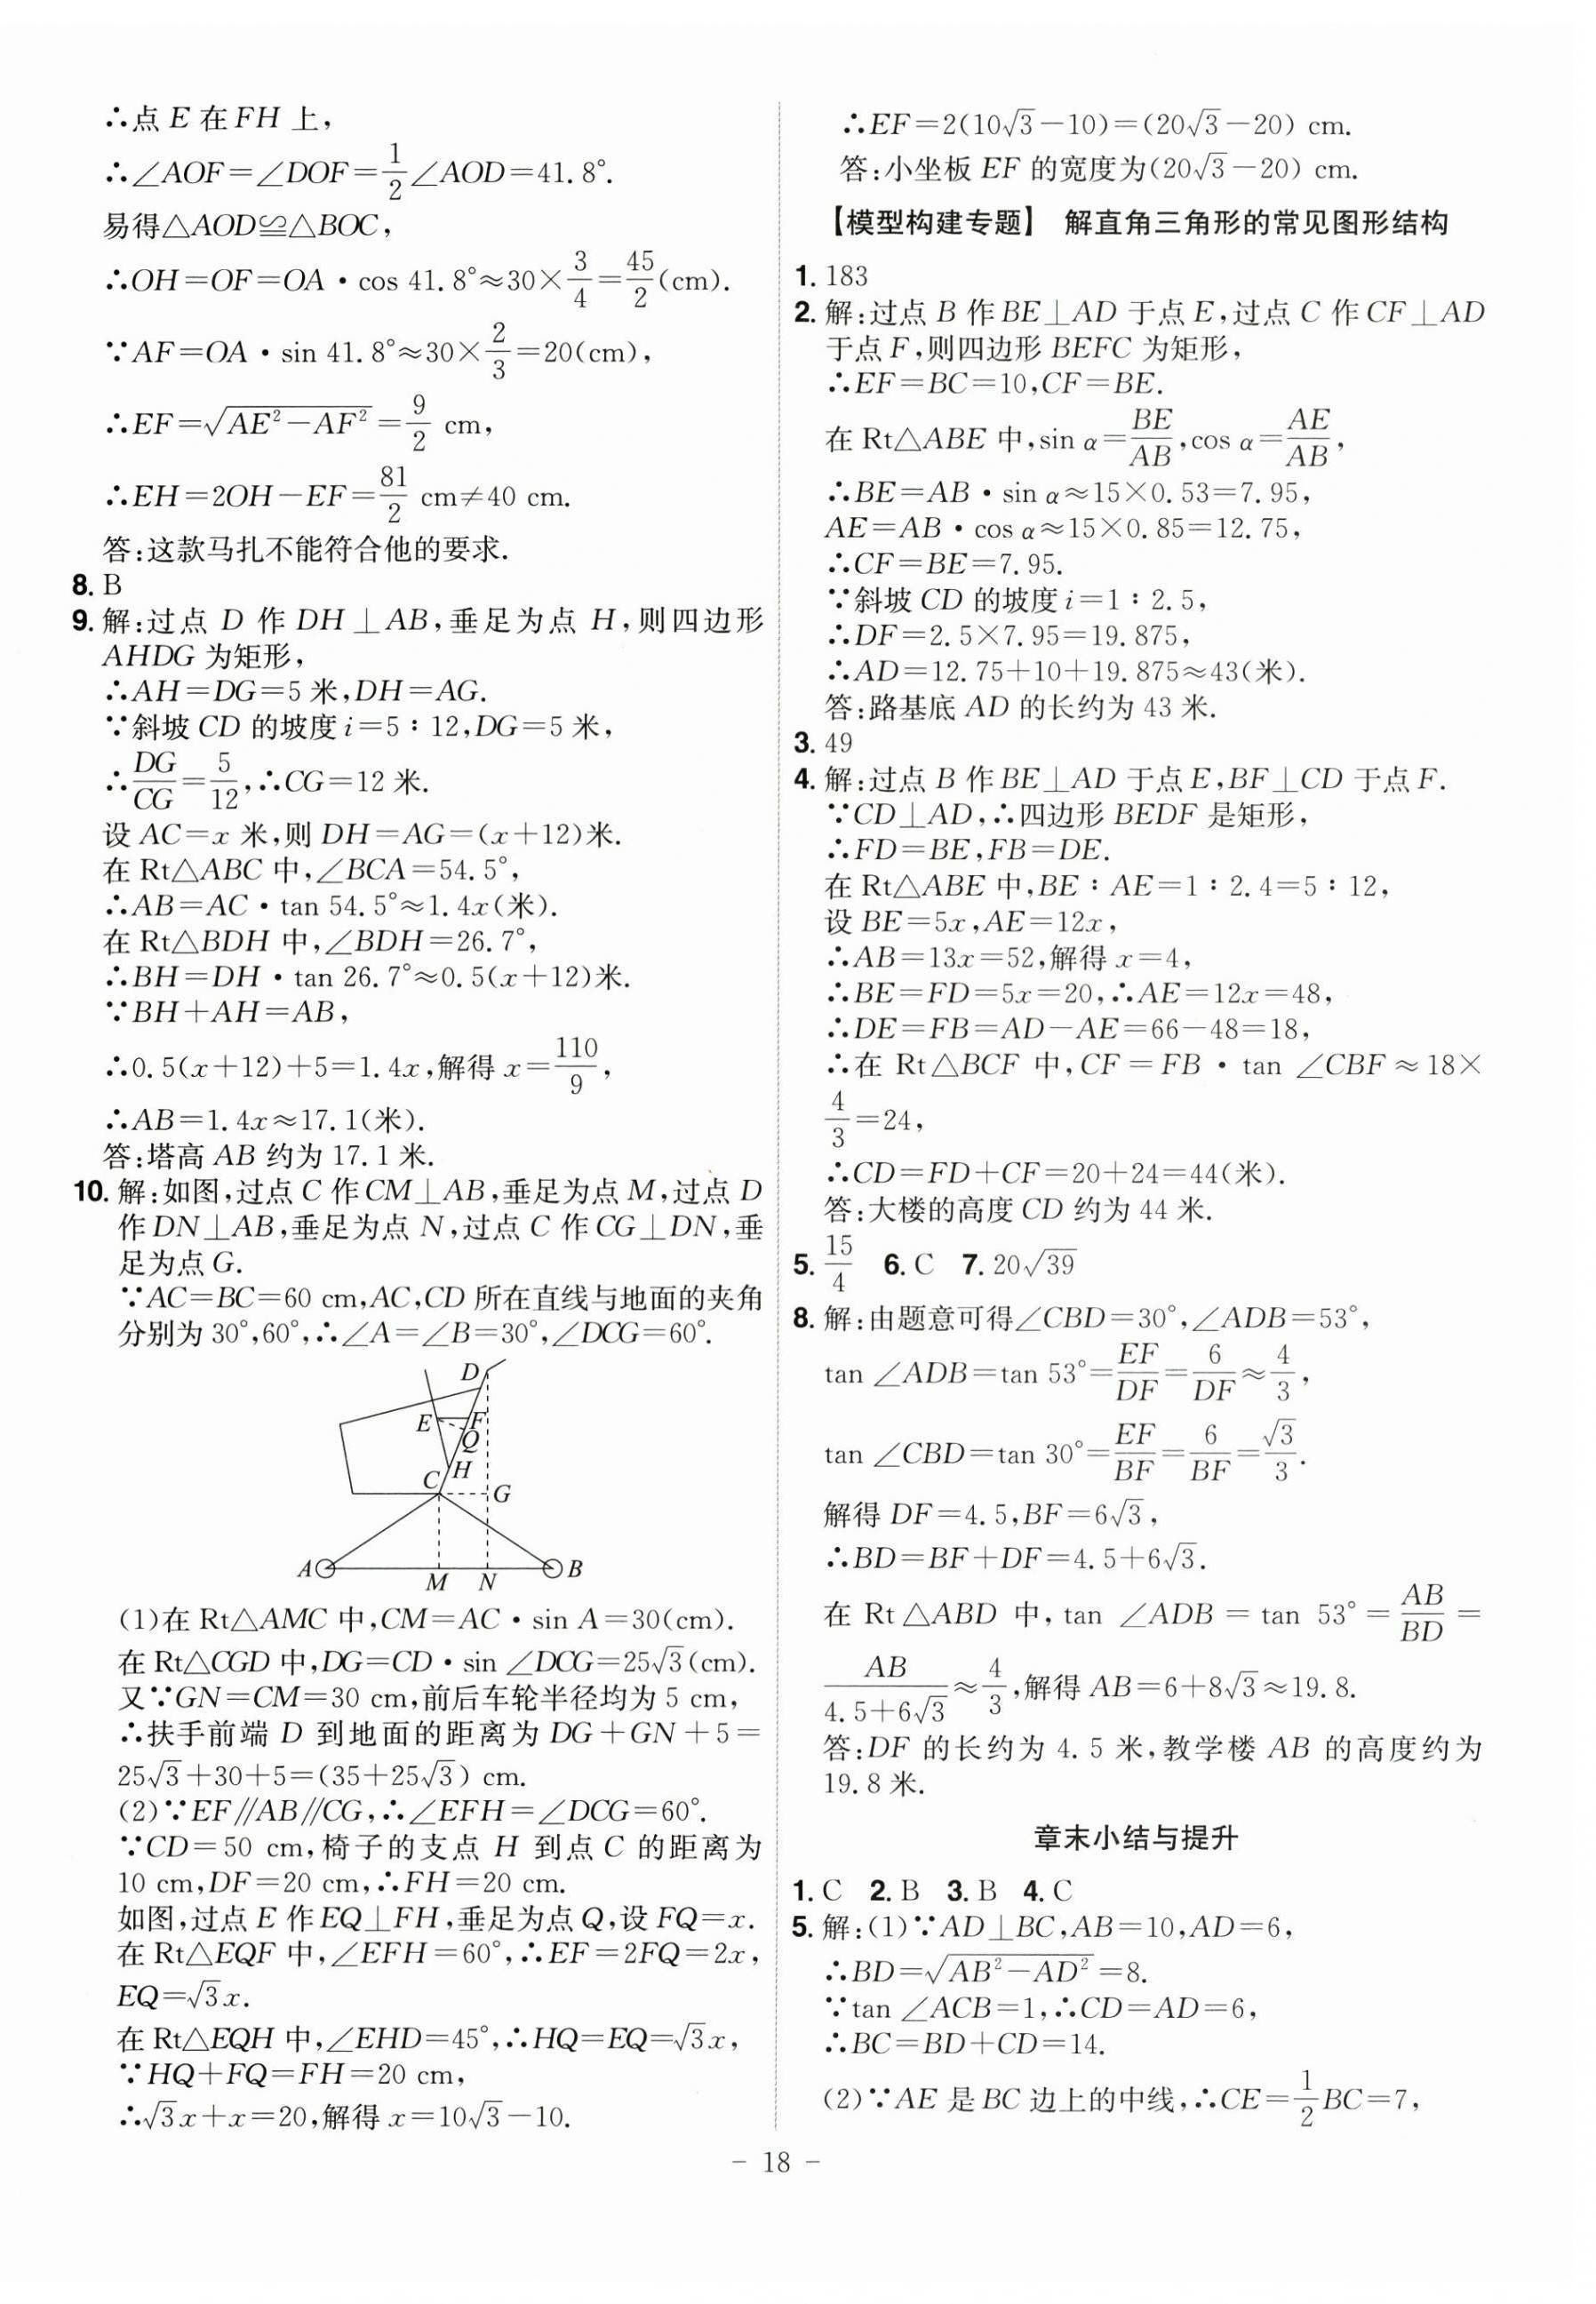 ∴点 E 在 FH 上,
∴∠AOF=∠DOF=1/2∠AOD=41.8°.
易得△AOD≌△BOC,
∴OH=OF=OA·cos 41.8°≈30×3/4=45/2(cm).
∵AF=OA·sin 41.8°≈30×2/3=20(cm),
∴EF=√(AE²-AF²)=9/2 cm,
∴EH=2OH-EF=81/2 cm≠40 cm.
答:这款马扎不能符合他的要求.
8. B
9. 解:过点 D 作 DH⊥AB,垂足为点 H,则四边形
AHDG 为矩形,
∴AH=DG=5 米,DH=AG.
∵斜坡 CD 的坡度 i=5∶12,DG=5 米,
∴DG/CG=5/12,∴CG=12 米.
设 AC=x 米,则 DH=AG=(x+12)米.
在 Rt△ABC 中,∠BCA=54.5°,
∴AB=AC·tan 54.5°≈1.4x(米).
在 Rt△BDH 中,∠BDH=26.7°,
∴BH=DH·tan 26.7°≈0.5(x+12)米.
∵BH+AH=AB,
∴0.5(x+12)+5=1.4x,解得 x=110/9,
∴AB=1.4x≈17.1(米).
答:塔高 AB 约为 17.1 米.
10. 解:如图,过点 C 作 CM⊥AB,垂足为点 M,过点 D
作 DN⊥AB,垂足为点 N,过点 C 作 CG⊥DN,垂
足为点 G.
∵AC=BC=60 cm,AC,CD 所在直线与地面的夹角
分别为 30°,60°,∴∠A=∠B=30°,∠DCG=60°.
D
E F
Q
H
C G
A M N B
(1)在 Rt△AMC 中,CM=AC·sin A=30(cm).
在 Rt△CGD 中,DG=CD·sin ∠DCG=25√3(cm).
又∵GN=CM=30 cm,前后车轮半径均为 5 cm,
∴扶手前端 D 到地面的距离为 DG+GN+5=
25√3+30+5=(35+25√3) cm.
(2)∵EF∥AB∥CG,∴∠EFH=∠DCG=60°.
∵CD=50 cm,椅子的支点 H 到点 C 的距离为
10 cm,DF=20 cm,∴FH=20 cm.
如图,过点 E 作 EQ⊥FH,垂足为点 Q,设 FQ=x.
在 Rt△EQF 中,∠EFH=60°,∴EF=2FQ=2x,
EQ=√3x.
在 Rt△EQH 中,∠EHD=45°,∴HQ=EQ=√3x,
∵HQ+FQ=FH=20 cm,
∴√3x+x=20,解得 x=10√3-10.
∴EF=2(10√3-10)=(20√3-20) cm.
答:小坐板 EF 的宽度为(20√3-20) cm.
【模型构建专题】 解直角三角形的常见图形结构
1. 183
2. 解:过点 B 作 BE⊥AD 于点 E,过点 C 作 CF⊥AD
于点 F,则四边形 BEFC 为矩形,
∴EF=BC=10,CF=BE.
在 Rt△ABE 中,sin α=BE/AB,cos α=AE/AB,
∴BE=AB·sin α≈15×0.53=7.95,
AE=AB·cos α≈15×0.85=12.75,
∴CF=BE=7.95.
∵斜坡 CD 的坡度 i=1∶2.5,
∴DF=2.5×7.95=19.875,
∴AD=12.75+10+19.875≈43(米).
答:路基底 AD 的长约为 43 米.
3. 49
4. 解:过点 B 作 BE⊥AD 于点 E,BF⊥CD 于点 F.
∵CD⊥AD,∴四边形 BEDF 是矩形,
∴FD=BE,FB=DE.
在 Rt△ABE 中,BE∶AE=1∶2.4=5∶12,
设 BE=5x,AE=12x,
∴AB=13x=52,解得 x=4,
∴BE=FD=5x=20,∴AE=12x=48,
∴DE=FB=AD-AE=66-48=18,
∴在 Rt△BCF 中,CF=FB·tan ∠CBF≈18×
4/3=24,
∴CD=FD+CF=20+24=44(米).
答:大楼的高度 CD 约为 44 米.
5. 15/4 6. C 7. 20√39
8. 解:由题意可得∠CBD=30°,∠ADB=53°,
tan ∠ADB=tan 53°=EF/DF=6/DF≈4/3,
tan ∠CBD=tan 30°=EF/BF=6/BF=√3/3.
解得 DF=4.5,BF=6√3,
∴BD=BF+DF=4.5+6√3.
在 Rt△ABD 中,tan ∠ADB=tan 53°=AB/BD=
AB/(4.5+6√3)≈4/3,解得 AB=6+8√3≈19.8.
答:DF 的长约为 4.5 米,教学楼 AB 的高度约为
19.8 米.
章末小结与提升
1. C 2. B 3. B 4. C
5. 解:(1)∵AD⊥BC,AB=10,AD=6,
∴BD=√(AB²-AD²)=8.
∵tan ∠ACB=1,∴CD=AD=6,
∴BC=BD+CD=14.
(2)∵AE 是 BC 边上的中线,∴CE=1/2BC=7,
- 18 -